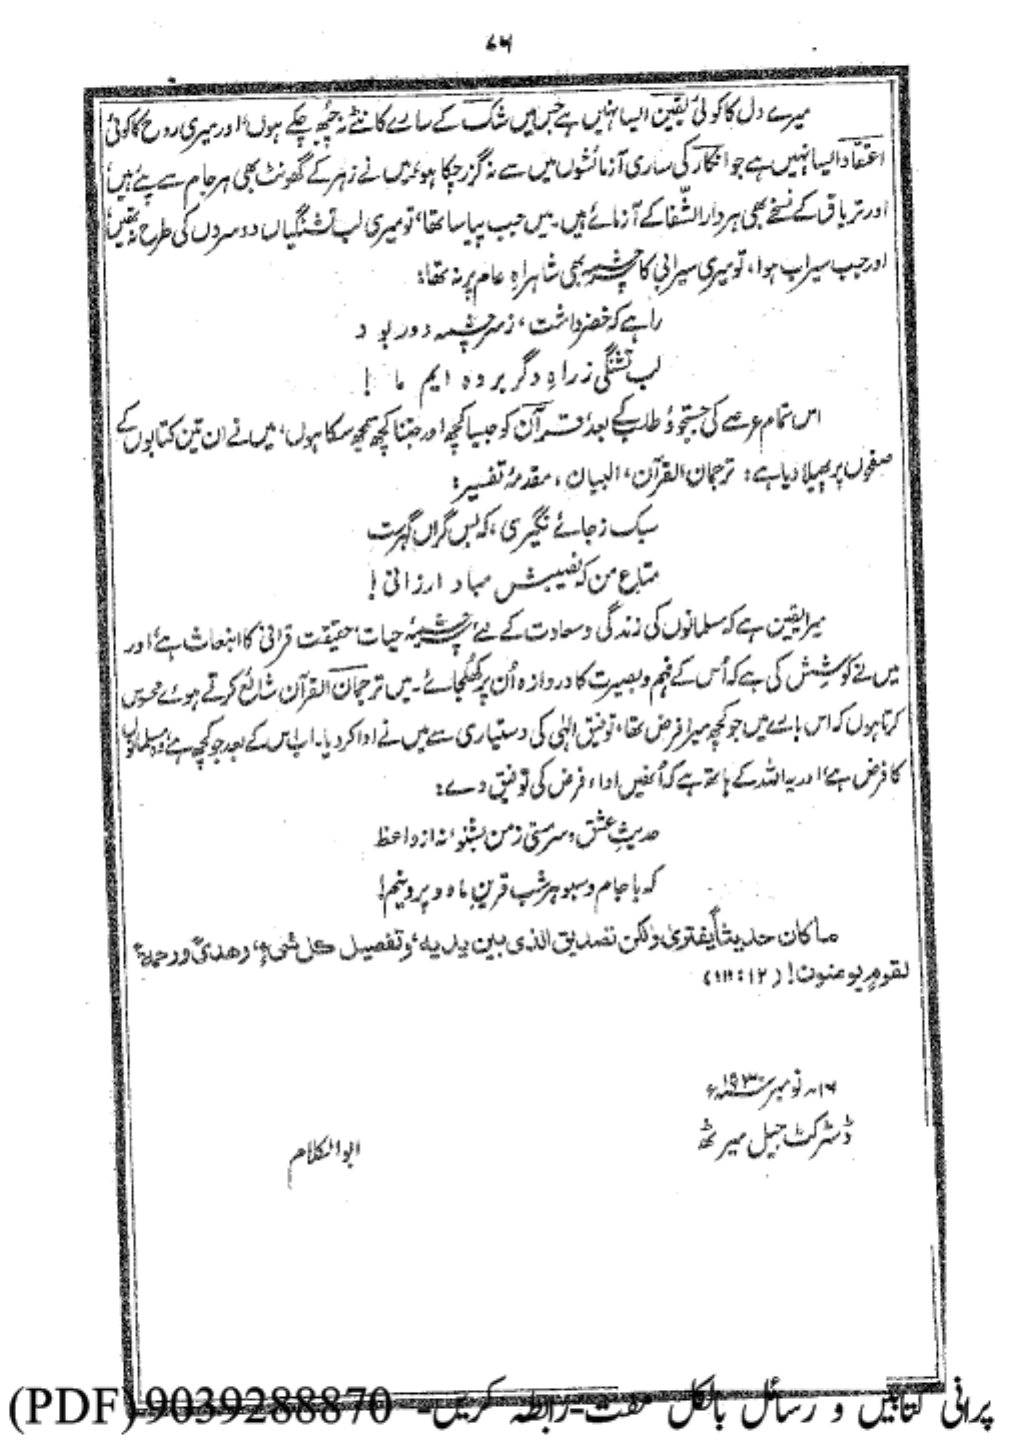 ۷۶
میرے دل کا کوئی یقین ایسا نہیں ہے جس میں شک کے سارے کانٹے نہ چُبھ چکے ہوں، اور میری روح کا کوئی
اعتقاد ایسا نہیں ہے جو انکار کی ساری آزمائشوں میں سے نہ گزر چکا ہو۔ میں نے زہر کے گھونٹ بھی ہر جام سے پئے ہیں،
اور تریاق کے نسخے بھی ہر دارالشّفا کے آزمائے ہیں۔ میں جب پیاسا تھا، تو میری لب تشنگیاں دوسروں کی طرح نہ تھیں،
اور جب سیراب ہوا، تو میری سیرابی کا چشمہ بھی شاہراہِ عام پر نہ تھا:
راہے کہ خضر داشت، ز سرچشمہ دور بود
لب تشنگی ز راہِ دگر بردہ ایم ما !
اس تمام عرصے کی جستجو و طلب کے بعد، قرآن کو جیسا کچھ اور جتنا کچھ سمجھ سکا ہوں، میں نے ان تین کتابوں کے
صفحوں پر پھیلا دیا ہے: ترجمان القرآن، البیان، مقدمۂ تفسیر:
سبک ز جائے نگیری، کہ بس گراں گہرست
متاعِ من کہ نصیبش مباد ارزانی !
میرا یقین ہے کہ مسلمانوں کی زندگی و سعادت کے لئے چشمۂ حیات، حقیقت قرآنی کا انبعاث ہے، اور
میں نے کوشش کی ہے کہ اُس کے فہم و بصیرت کا دروازہ اُن پر کھُل جائے۔ میں ترجمان القرآن شائع کرتے ہوئے محسوس
کرتا ہوں کہ اس بارے میں جو کچھ میرا فرض تھا، توفیق الٰہی کی دستیاری سے میں نے ادا کر دیا۔ اب اس کے بعد جو کچھ ہے، وہ مسلمانوں
کا فرض ہے، اور یہ اللہ کے ہاتھ ہے کہ اُنھیں اداء فرض کی توفیق دے:
حدیثِ عشق و سرمستی ز من بشنو، نہ از واعظ
کہ با جام و سبو ہر شب قرینِ ماہ و پروینم !
ما كان حديثاً يفترى ولكن تصديق الذى بين يديه، وتفصيل كل شىءٍ، وهدىً ورحمةً
لقومٍ يومنون ! (۱۲ : ۱۱۱)
۱۶۔ نومبر سنہ ۱۹۳۰ء
ڈسٹرکٹ جیل میرٹھ
ابوالکلام
پرانی کتابیں و رسائل بالکل مفت۔ رابطہ کریں۔ 9039288870 (PDF)